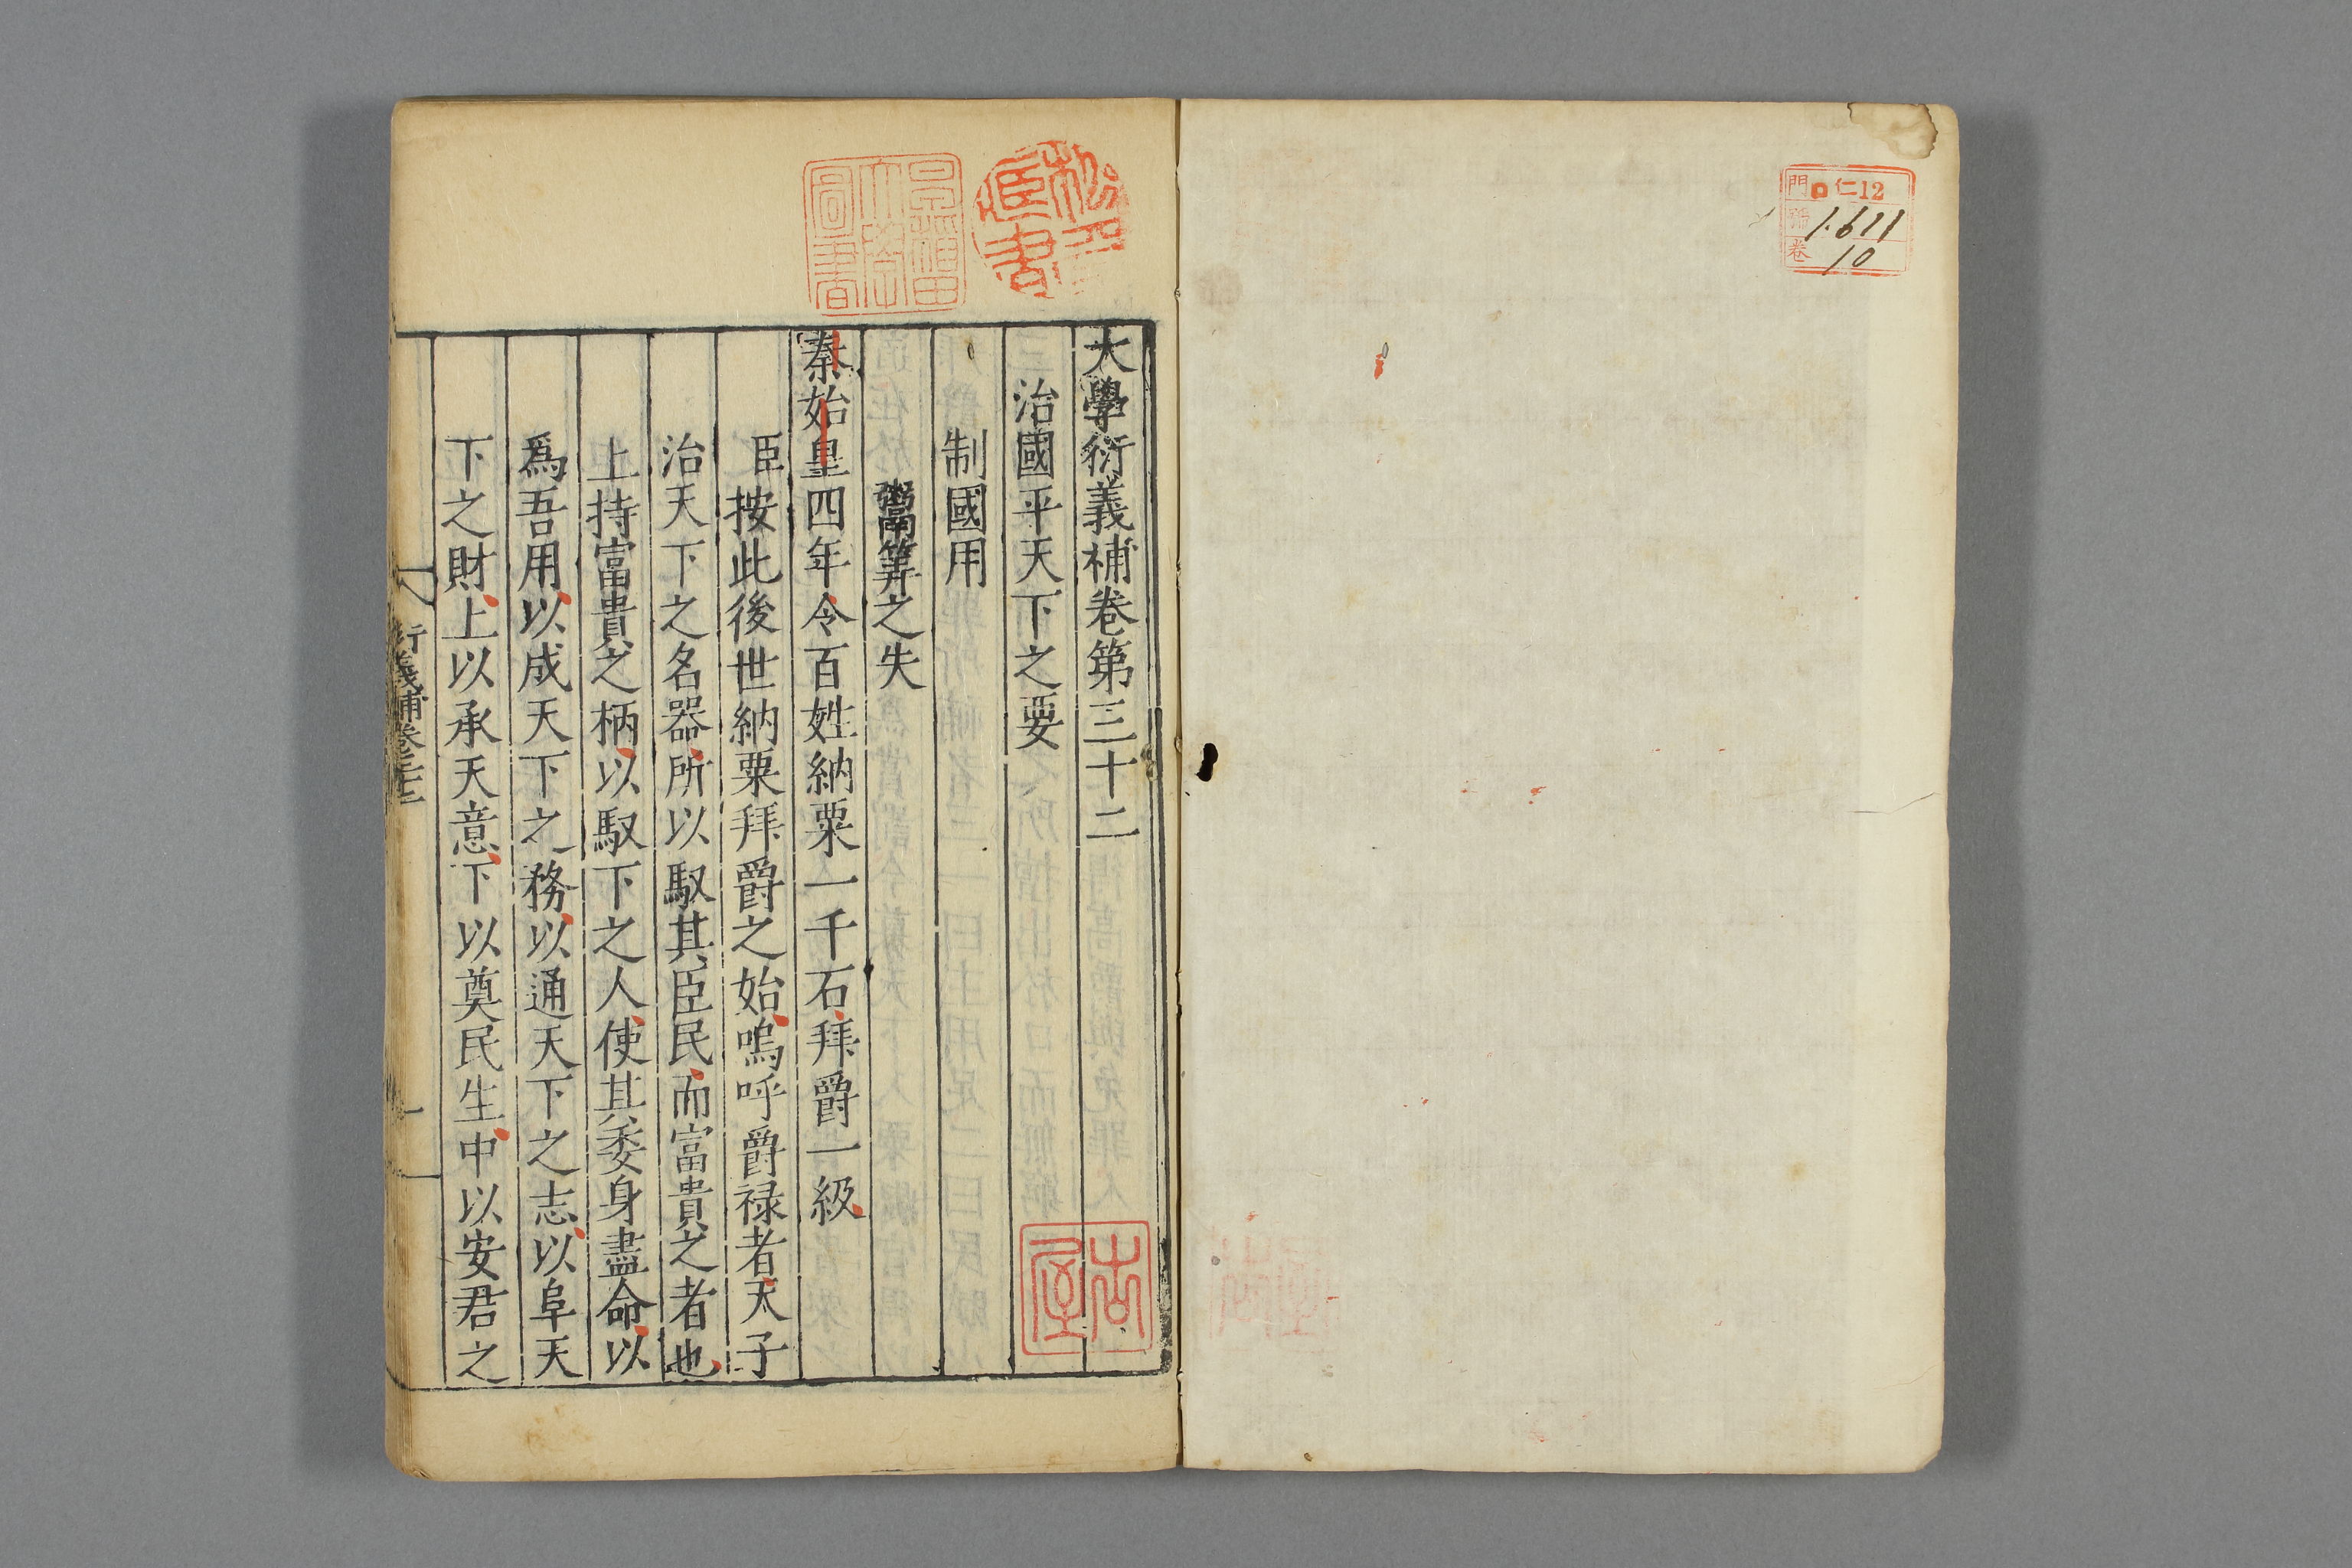 門 仁12
號 1611
卷 10
大學衍義補卷第三十二
治國平天下之要
制國用
鬻筭之失
秦始皇四年令百姓納粟一千石拜爵一級
臣按此後世納粟拜爵之始嗚呼爵祿者天子
治天下之名器所以馭其臣民而富貴之者也
上持富貴之柄以馭下之人使其委身盡命以
爲吾用以成天下之務以通天下之志以阜天
下之財上以承天意下以奠民生中以安君之
衍義補卷三十二
一